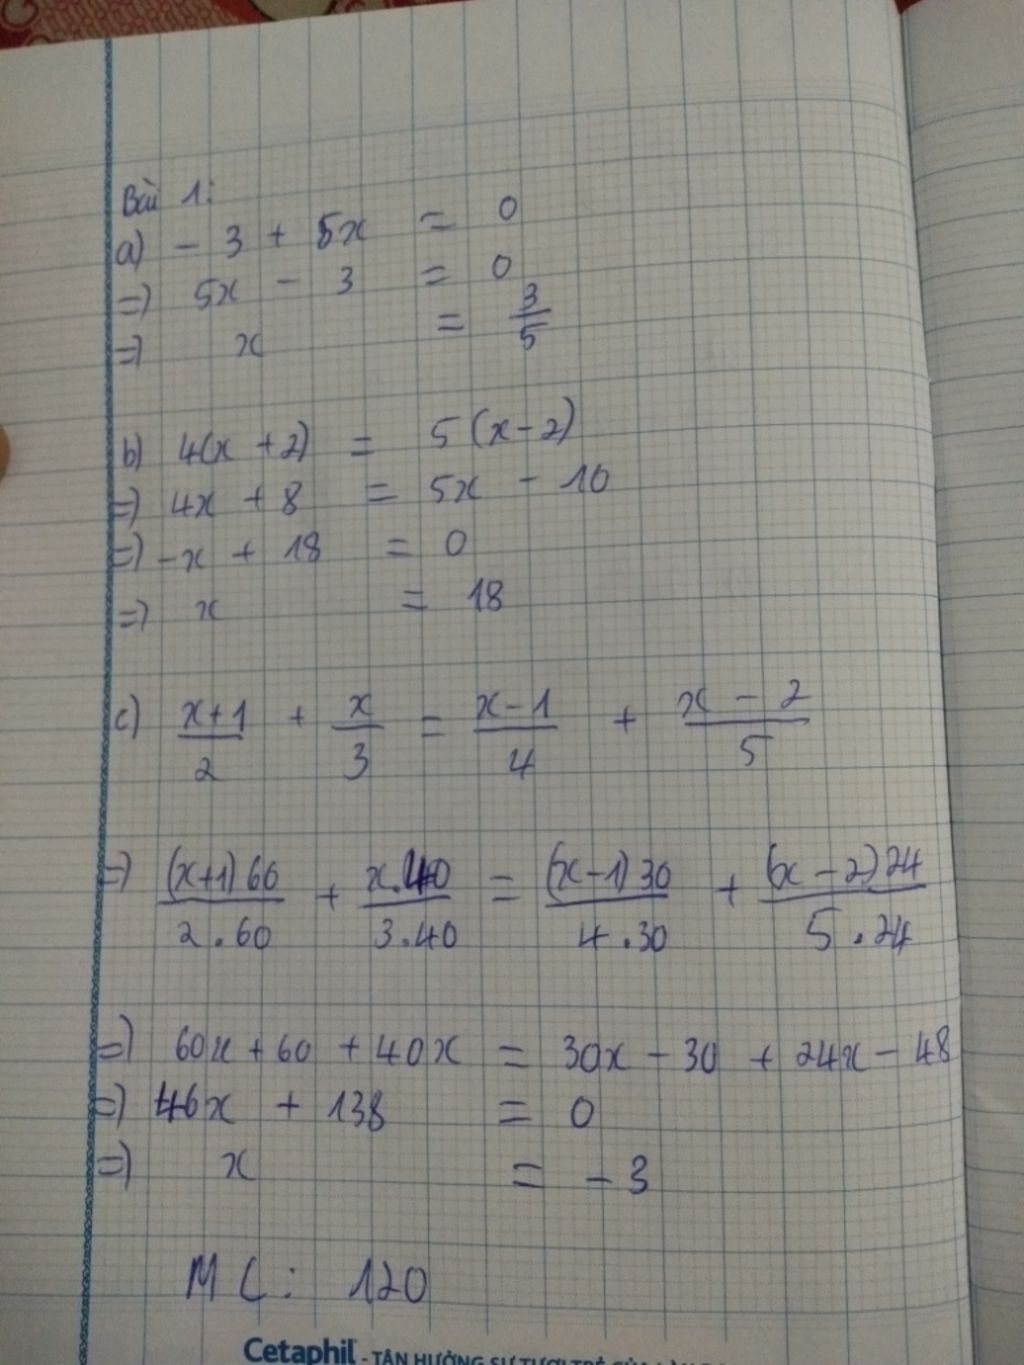 Bài 1:
a) - 3 + 5x = 0
=) 5x - 3 = 0
=) x = 3/5
b) 4(x + 2) = 5(x - 2)
=) 4x + 8 = 5x - 10
=) -x + 18 = 0
=) x = 18
c) (x+1)/2 + x/3 = (x-1)/4 + (x - 2)/5
=) (x+1)60/2.60 + x.40/3.40 = (x-1)30/4.30 + (x-2)24/5.24
=) 60x + 60 + 40x = 30x - 30 + 24x - 48
=) 46x + 138 = 0
=) x = - 3
MC: 120
Cetaphil - TẬN HƯỞNG SỰ TƯƠI TRẺ